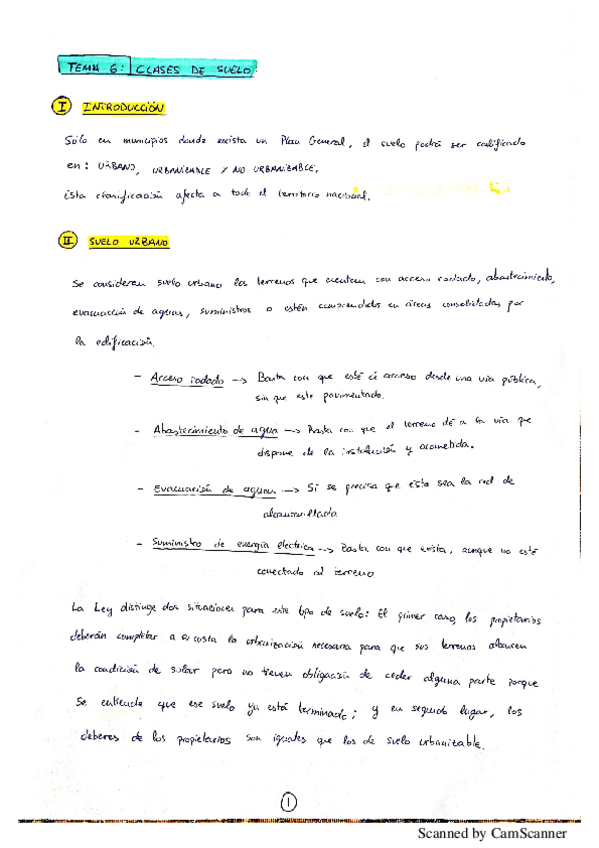 TEMA 6: CLASES DE SUELO.
I INTRODUCCIÓN
Sólo en municipios donde exista un Plan General, el suelo podrá ser calificado
en: URBANO, URBANIZABLE Y NO URBANIZABLE.
Esta clasificación afecta a todo el territorio nacional.
II SUELO URBANO
Se consideran suelo urbano los terrenos que cuentan con acceso rodado, abastecimiento,
evacuación de aguas, suministros o estén comprendidos en áreas consolidadas por
la edificación.
- Acceso rodado --> Basta con que esté el acceso desde una vía pública,
sin que este pavimentado.
- Abastecimiento de agua --> Basta con que el terreno dé a la vía que
dispone de la instalación y acometida.
- Evacuación de aguas --> Si se precisa que ésta sea la red de
alcantarillado
- Suministro de energía electrica --> Basta con que exista, aunque no esté
conectado al terreno
La Ley distinge dos situaciones para este tipo de suelo: El primer caso, los propietarios
deberán completar a su costa la urbanización necesaria para que sus terrenos alcancen
la condición de solar pero no tienen obligación de ceder alguna parte porque
se entiende que ese suelo ya está terminado; y en segundo lugar, los
deberes de los propietarios son iguales que los de suelo urbanizable.
1
Scanned by CamScanner